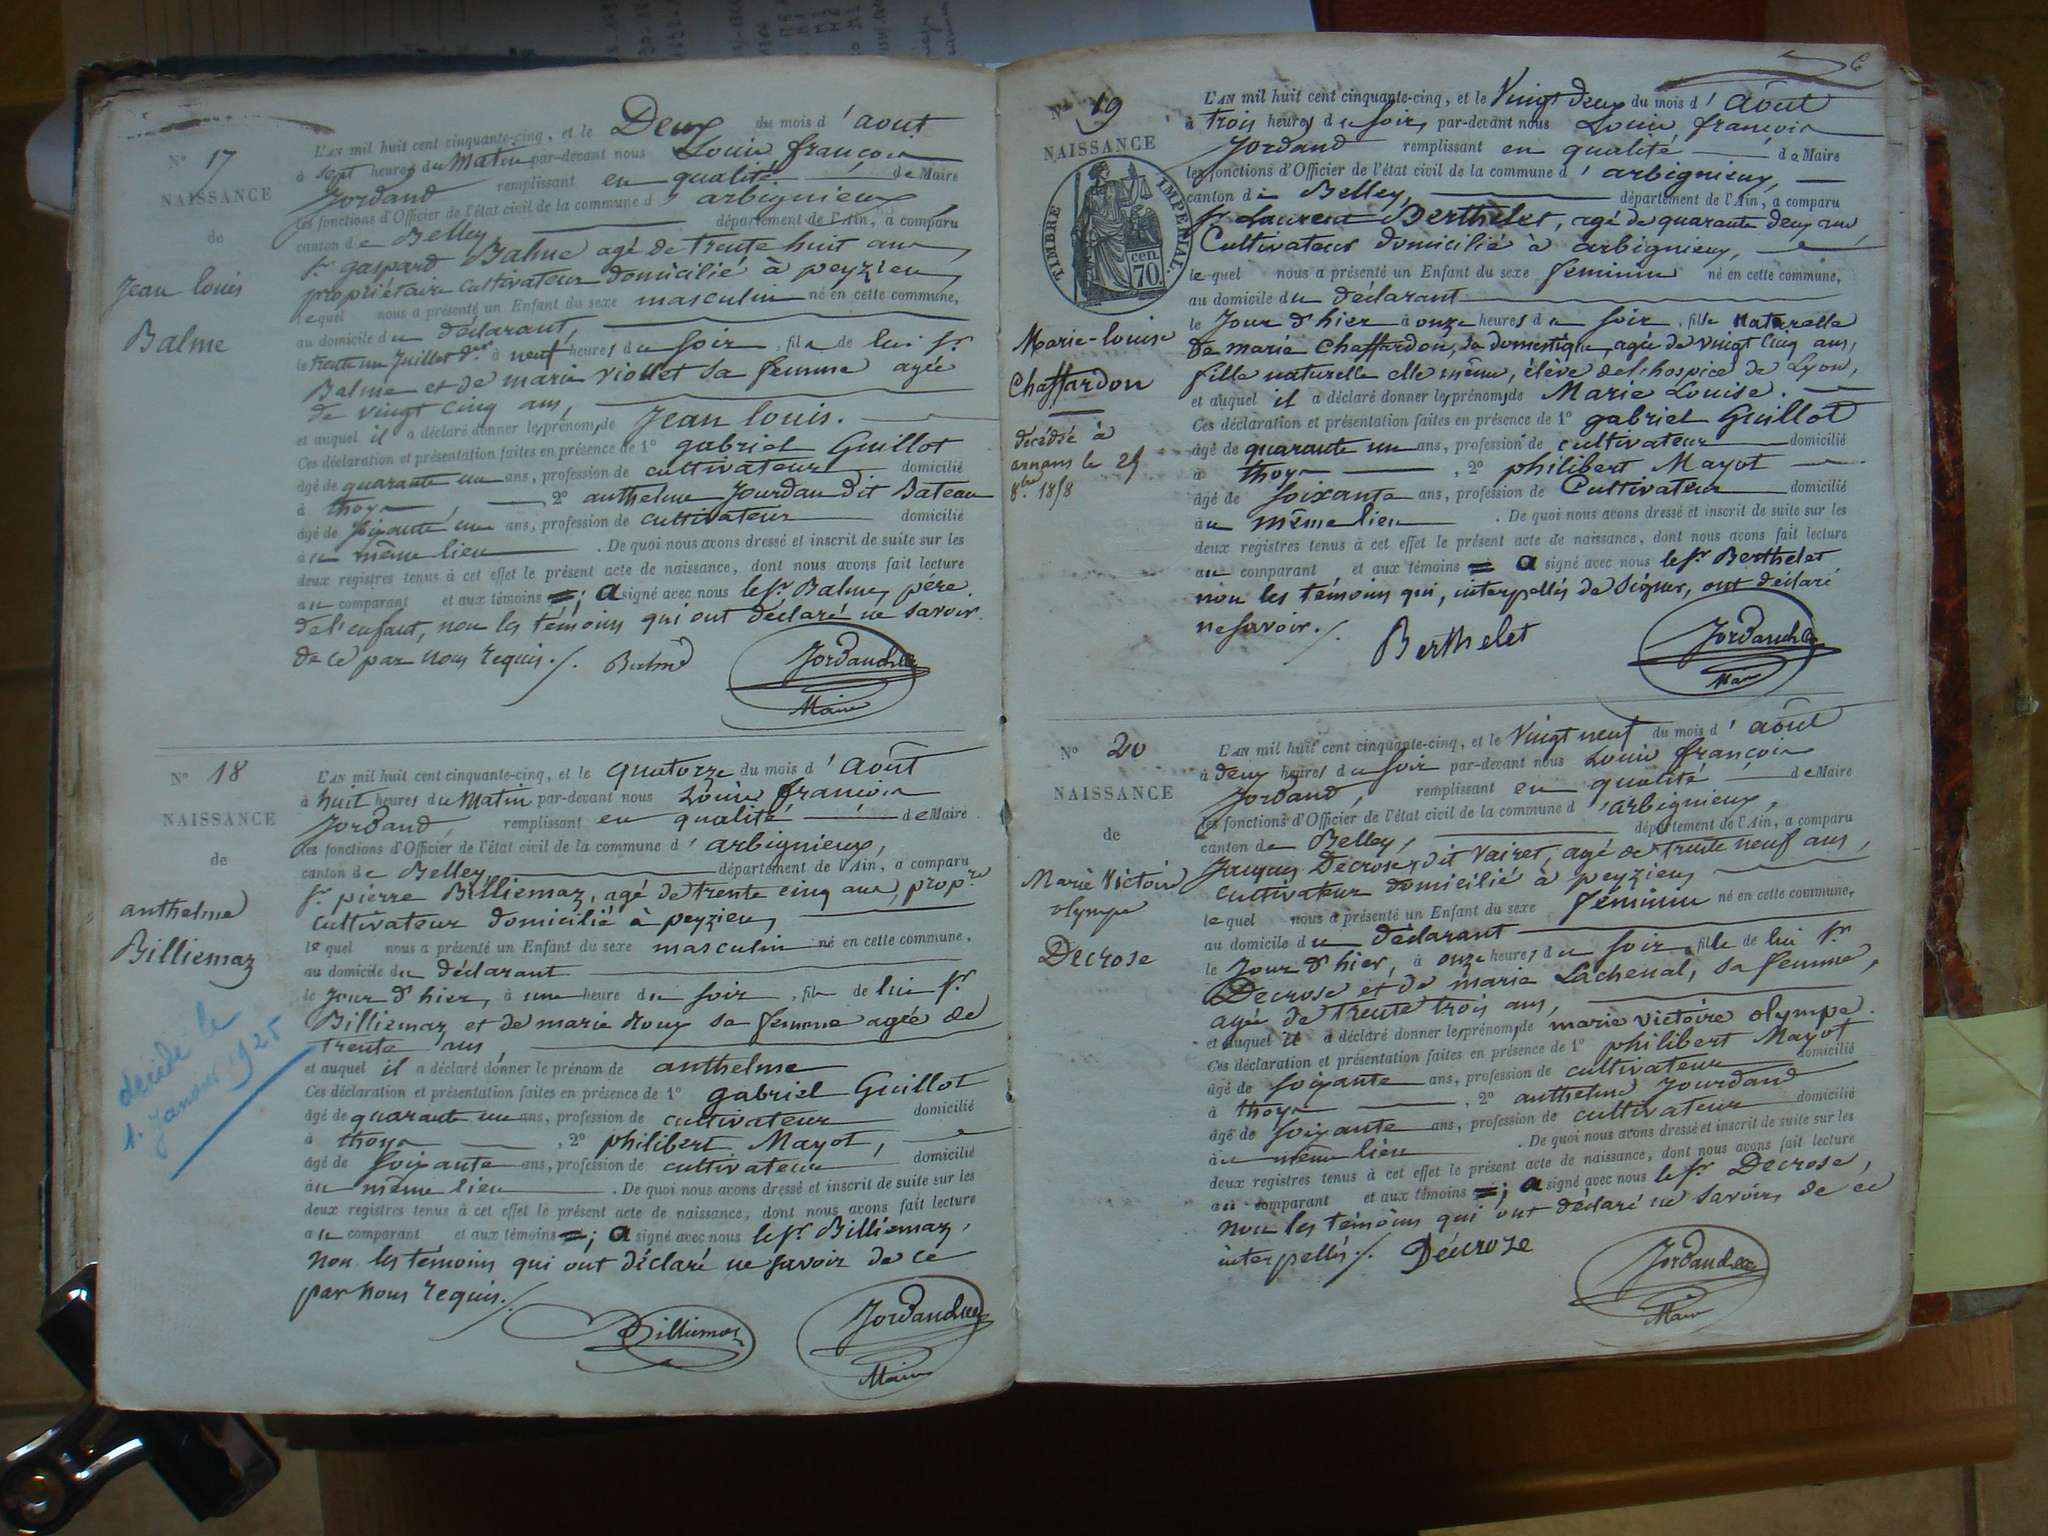 N° 17
NAISSANCE
de
Jean louis
Balme
L'AN mil huit cent cinquante-cinq, et le Deux du mois d'aout
à sept heures du Matin par-devant nous Louis françois
Jordand remplissant en qualité de Maire
les fonctions d'Officier de l'état civil de la commune d'arbignieux
canton de Belley, département de l'Ain, a comparu
sr gaspard Balme agé de trente huit ans,
propriétaire cultivateur domicilié à peyzieu,
lequel nous a présenté un Enfant du sexe masculin né en cette commune,
au domicile du déclarant,
le trente un Juillet der à neuf heures du soir, fils de lui sr
Balme et de marie viollet sa femme agée
de vingt cinq ans,
et auquel il a déclaré donner les prénoms de Jean louis.
Ces déclaration et présentation faites en présence de 1° gabriel Guillot
âgé de quarante un ans, profession de cultivateur domicilié
à thoys 2° anthelme Jourdan dit Bateau
âgé de soixante un ans, profession de cultivateur domicilié
au même lieu. De quoi nous avons dressé et inscrit de suite sur les
deux registres tenus à cet effet le présent acte de naissance, dont nous avons fait lecture
au comparant et aux témoins =; a signé avec nous le sr Balme, père
de l'enfant, non les témoins qui ont déclaré ne savoir
de ce par nous requis./. Balme Jordand
Maire
N° 18
NAISSANCE
de
anthelme
Billiemaz
décédé le
1. Janvier 1925
L'AN mil huit cent cinquante-cinq, et le quatorze du mois d'août
à huit heures du Matin par-devant nous Louis françois
Jordand, remplissant en qualité de Maire
les fonctions d'Officier de l'état civil de la commune d'arbignieux,
canton de Belley, département de l'Ain, a comparu
sr pierre Billiemaz, agé de trente cinq ans, propre
cultivateur domicilié à peyzieu,
lequel nous a présenté un Enfant du sexe masculin né en cette commune,
au domicile du déclarant
le jour d'hier, à une heure du soir, fils de lui sr
Billiemaz et de marie Roux sa femme agée de
trente ans,
et auquel il a déclaré donner le prénom de anthelme
Ces déclaration et présentation faites en présence de 1° gabriel Guillot
âgé de quarante un ans, profession de cultivateur domicilié
à thoys, 2° philibert Mayot,
âgé de soixante ans, profession de cultivateur domicilié
au même lieu. De quoi nous avons dressé et inscrit de suite sur les
deux registres tenus à cet effet le présent acte de naissance, dont nous avons fait lecture
au comparant et aux témoins =; a signé avec nous le sr Billiemaz,
non les témoins qui ont déclaré ne savoir de ce
par nous requis./.
Billiemaz Jordand
Maire
N° 19
NAISSANCE
TIMBRE IMPERIAL.
70 cen.
Marie-louise
Chaffardon
décédée à
arnans le 25
8bre 1858
L'AN mil huit cent cinquante-cinq, et le Vingt deux du mois d'août
à trois heures du soir, par-devant nous Louis françois
Jordand remplissant en qualité de Maire
les fonctions d'Officier de l'état civil de la commune d'arbignieux,
canton de Belley, département de l'Ain, a comparu
sr Laurent Berthelet, agé de quarante deux ans,
Cultivateur domicilié à arbignieux,
lequel nous a présenté un Enfant du sexe féminin né en cette commune,
au domicile du déclarant
le Jour d'hier à onze heures du soir, fille naturelle
de marie Chaffardon, sa domestique, agée de vingt cinq ans,
fille naturelle elle même, élève de l'hospice de Lyon,
et auquel il a déclaré donner les prénoms de Marie Louise.
Ces déclaration et présentation faites en présence de 1° gabriel Guillot
âgé de quarante un ans, profession de cultivateur domicilié
à thoys, 2° philibert Mayot
âgé de soixante ans, profession de Cultivateur domicilié
au même lieu. De quoi nous avons dressé et inscrit de suite sur les
deux registres tenus à cet effet le présent acte de naissance, dont nous avons fait lecture
au comparant et aux témoins = a signé avec nous le sr Berthelet
non les témoins qui, interpellés de signer, ont déclaré
ne savoir./. Berthelet Jordand
Maire
N° 20
NAISSANCE
de
Marie Victoire
olympe
Decrose
L'AN mil huit cent cinquante-cinq, et le Vingt neuf du mois d'août
à deux heures du soir par-devant nous Louis françois
Jordand, remplissant en qualité de Maire
les fonctions d'Officier de l'état civil de la commune d'arbignieux,
canton de Belley, département de l'Ain, a comparu
Jacques Decrose, dit Vairet, agé de trente neuf ans,
cultivateur domicilié à peyzieu,
lequel nous a présenté un Enfant du sexe féminin né en cette commune,
au domicile du déclarant
le Jour d'hier, à onze heures du soir, fille de lui sr
Decrose et de marie Lachenal, sa femme,
agée de trente trois ans,
et auquel il a déclaré donner les prénoms de marie victoire olympe.
Ces déclaration et présentation faites en présence de 1° philibert Mayot
âgé de soixante ans, profession de cultivateur domicilié
à thoys, 2° anthelme Jourdand
âgé de soixante ans, profession de cultivateur domicilié
au même lieu. De quoi nous avons dressé et inscrit de suite sur les
deux registres tenus à cet effet le présent acte de naissance, dont nous avons fait lecture
au comparant et aux témoins =; a signé avec nous le sr Decrose,
non les témoins qui ont déclaré ne savoir, de ce
interpellés./. Décroze Jordand
Maire